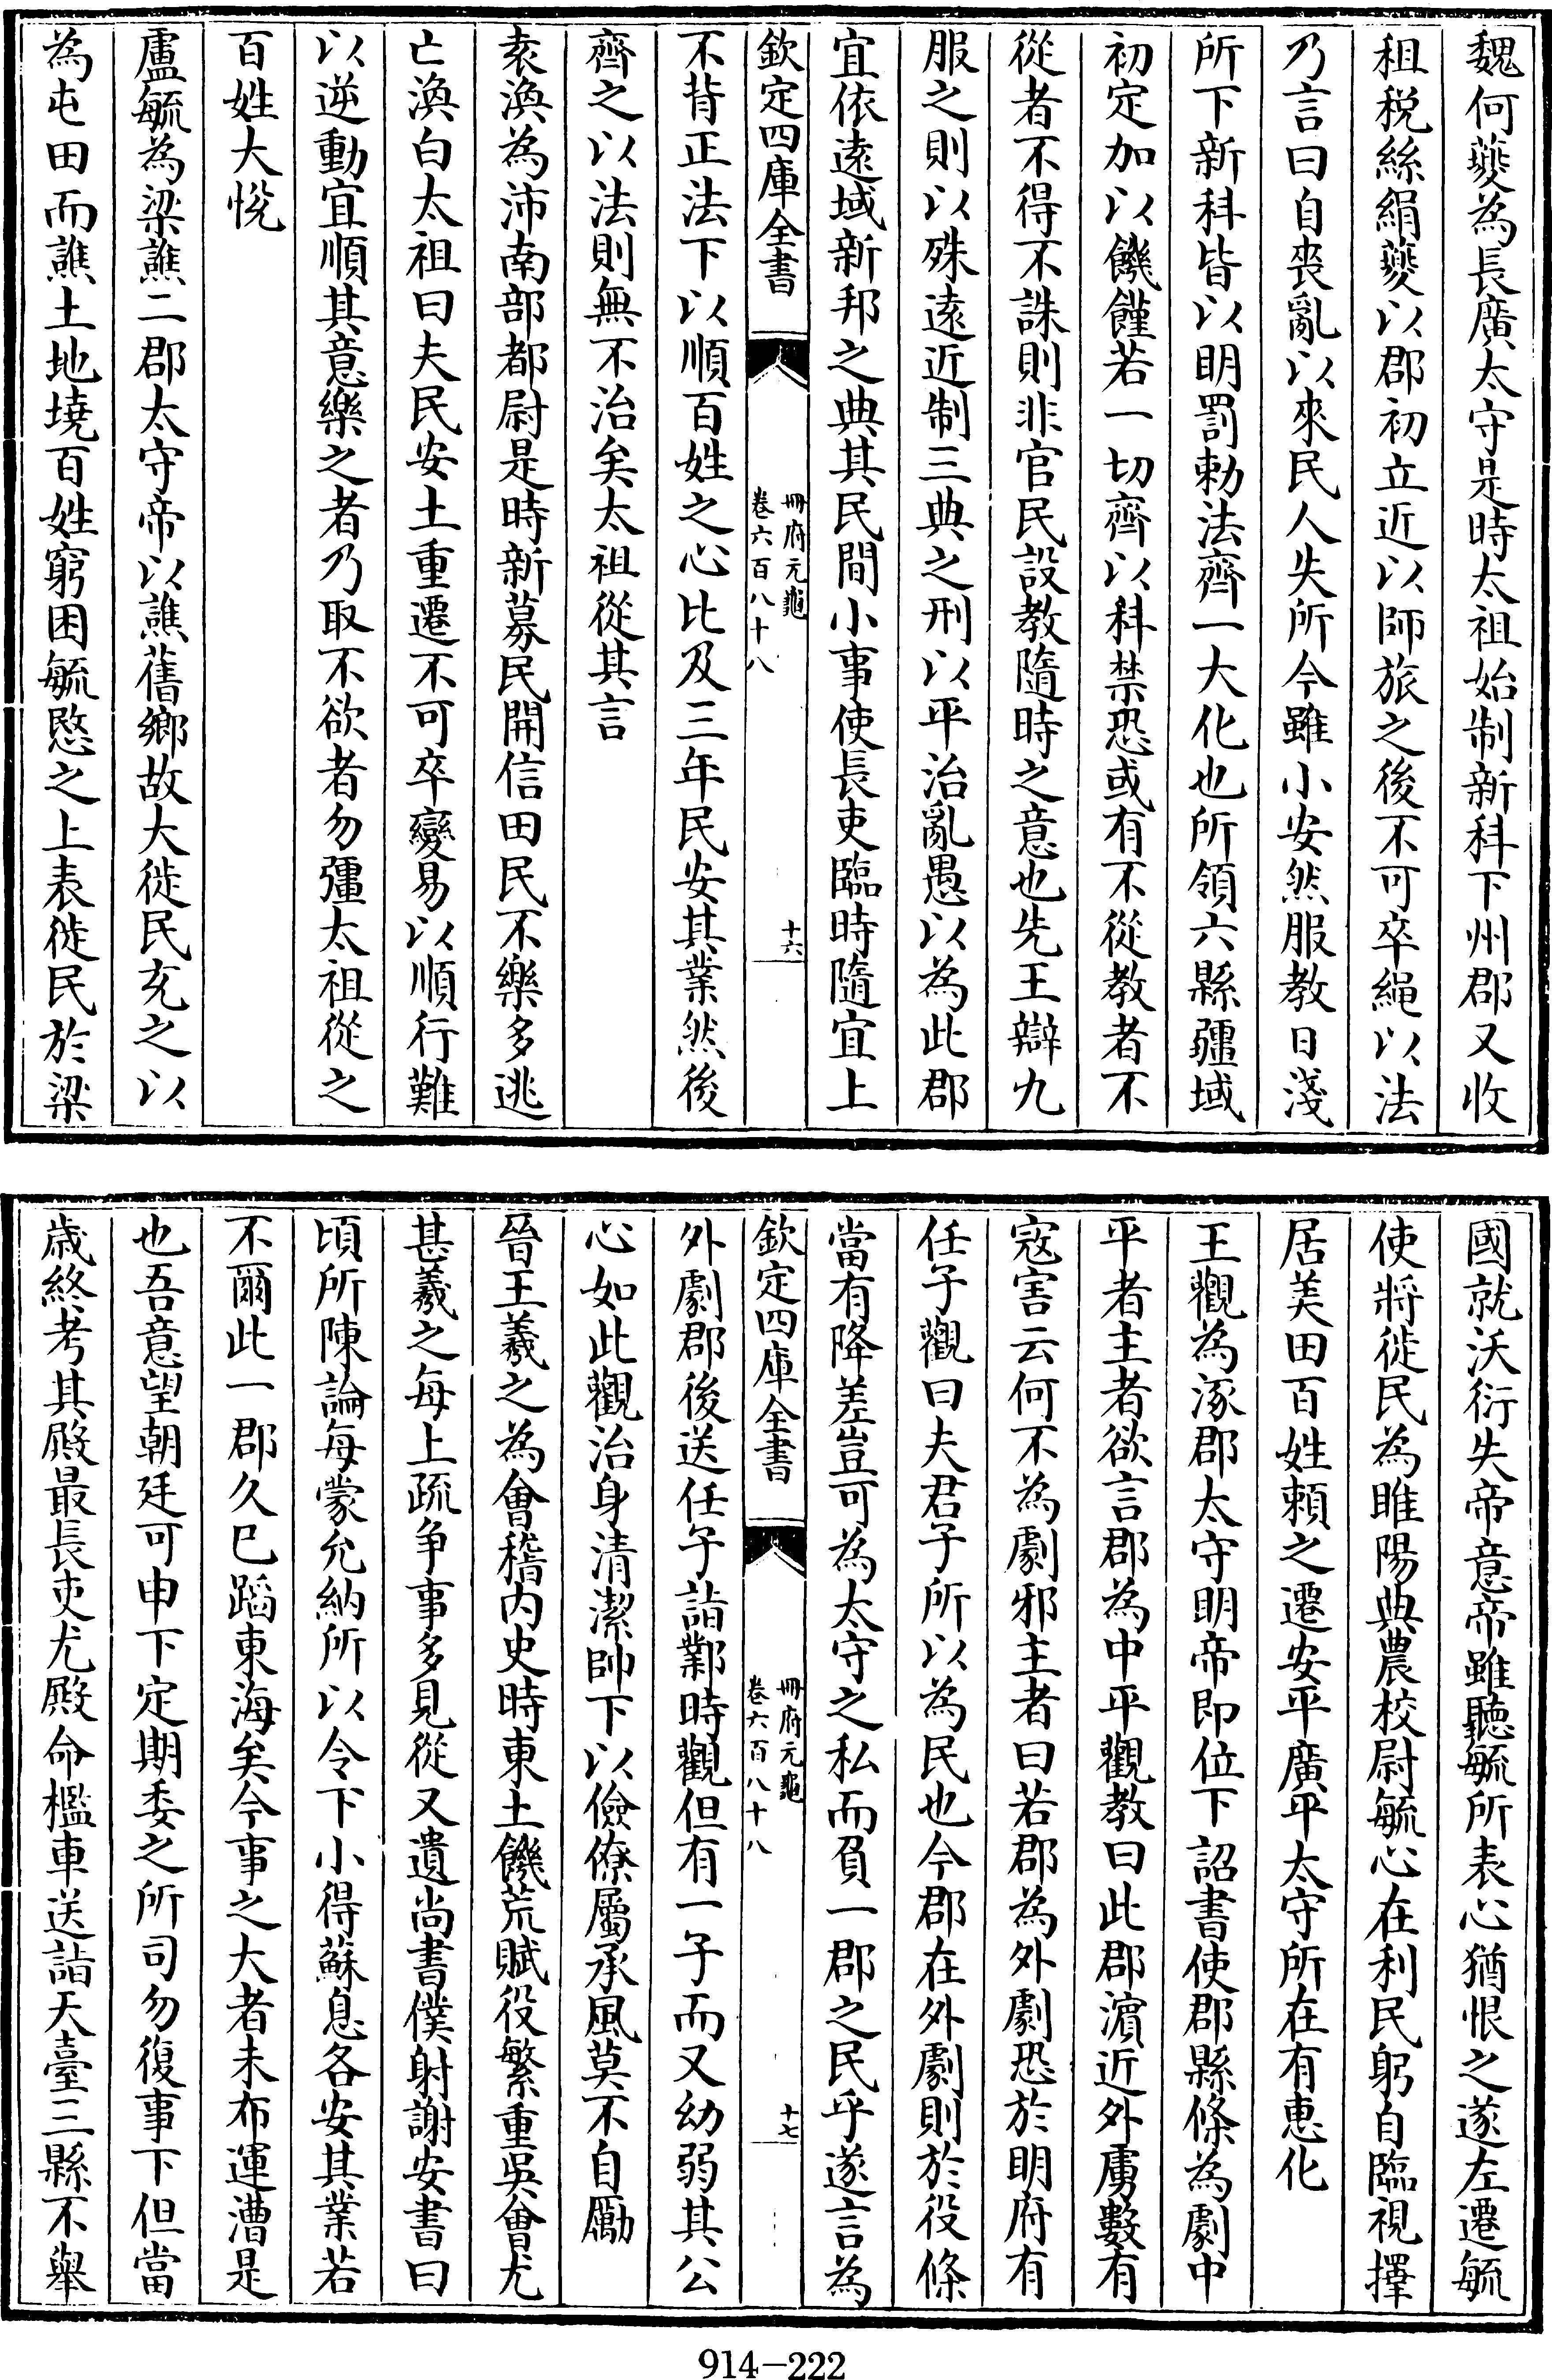 魏何夔為長廣太守是時太祖始制新科下州郡又收
租税絲絹夔以郡初立近以師旅之後不可卒繩以法
乃言曰自喪亂以來民人失所今雖小安然服教日淺
所下新科皆以明罰勅法齊一大化也所領六縣疆域
初定加以饑饉若一切齊以科禁恐或有不從教者不
從者不得不誅則非官民設教隨時之意也先王辯九
服之則以殊遠近制三典之刑以平治亂愚以為此郡
宜依遠域新邦之典其民間小事使長吏臨時隨宜上
欽定四庫全書
冊府元龜
卷六百八十八
十六
不背正法下以順百姓之心比及三年民安其業然後
齊之以法則無不治矣太祖從其言
袁渙為沛南部都尉是時新募民開信田民不樂多逃
亡渙白太祖曰夫民安土重遷不可卒變易以順行難
以逆動宜順其意樂之者乃取不欲者勿彊太祖從之
百姓大悅
盧毓為梁譙二郡太守帝以譙舊鄉故大徙民充之以
為屯田而譙土地墝百姓窮困毓愍之上表徙民於梁
國就沃衍失帝意帝雖聽毓所表心猶恨之遂左遷毓
使將徙民為睢陽典農校尉毓心在利民躬自臨視擇
居美田百姓賴之遷安平廣平太守所在有惠化
王觀為涿郡太守明帝即位下詔書使郡縣條為劇中
平者主者欲言郡為中平觀教曰此郡濵近外虜數有
寇害云何不為劇邪主者曰若郡為外劇恐於明府有
任子觀曰夫君子所以為民也今郡在外劇則於役條
當有降差豈可為太守之私而負一郡之民乎遂言為
欽定四庫全書
冊府元龜
卷六百八十八
十七
外劇郡後送任子詣鄴時觀但有一子而又幼弱其公
心如此觀治身清潔帥下以儉僚屬承風莫不自勵
晉王羲之為會稽内史時東土饑荒賦役繁重吳會尤
甚羲之每上疏争事多見從又遺尚書僕射謝安書曰
頃所陳論每蒙允納所以令下小得蘇息各安其業若
不爾此一郡久已蹈東海矣今事之大者未布運漕是
也吾意望朝廷可申下定期委之所司勿復事下但當
歲終考其殿最長吏尤殿命檻車送詣天臺三縣不舉
914-222